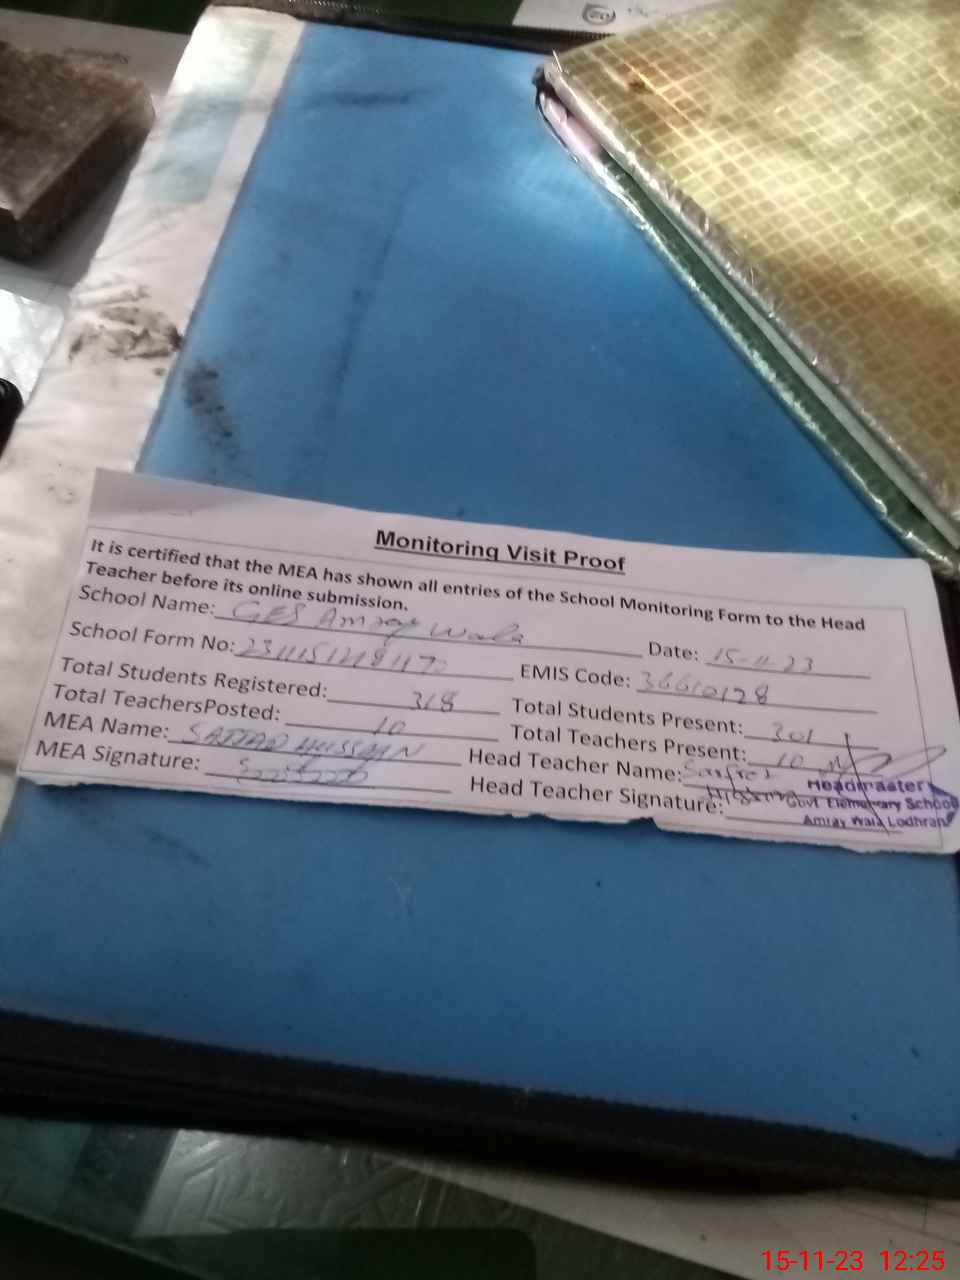 Monitoring Visit Proof
It is certified that the MEA has shown all entries of the School Monitoring Form to the Head
Teacher before its online submission.
School Name: GES Amray Wala Date: 15-11-23
School Form No: EMIS Code: 36610128
Total Students Registered: 318 Total Students Present: 301
Total TeachersPosted: 10 Total Teachers Present: 10
MEA Name: SAJJAD HUSSAIN Head Teacher Name:
MEA Signature: Head Teacher Signature:
Headmaster
Govt Elementary School
Amray Wala Lodhran
15-11-23 12:25